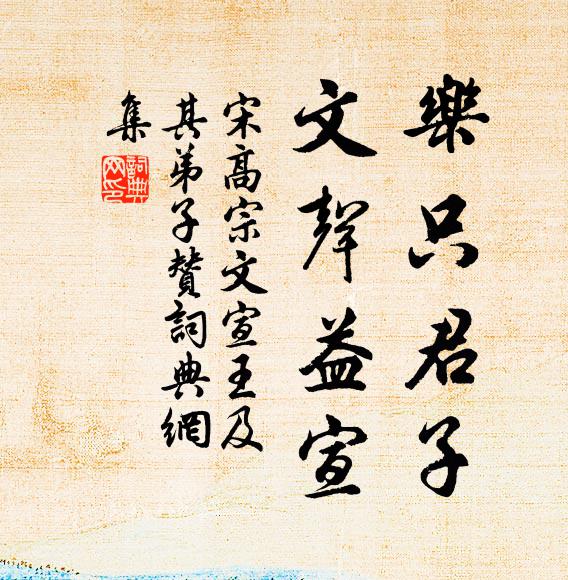 樂只君子
文聲益宣
宋高宗文宣王及
其弟子贊詞典網
集
詞典
网印